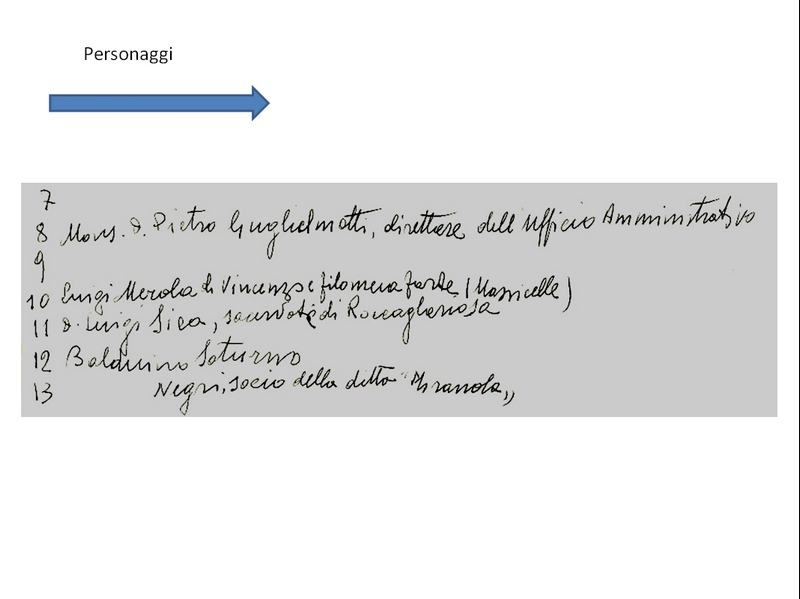 Personaggi
7
8 Mons. d. Pietro Guglielmotti, direttore dell'Ufficio Amministrativo
9
10 Luigi Merola di Vincenzo e filomena forte (Massicelle)
11 d. Luigi Sica, sacerdote di Roccagloriosa
12 Balduino Soturno
13 Negri, socio della ditta